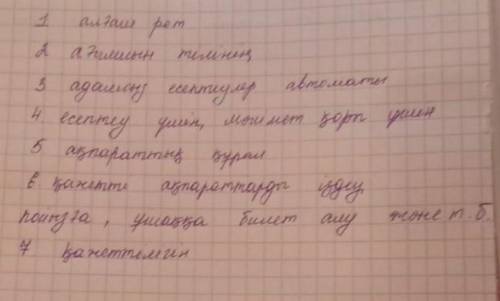 1 алғаш рет
2 ағылшын тілінің
3 адамның есептеулер автоматы
4. есептеу үшін, мәлімет қоры үшін
5 ақпараттық құрал
6 қажетті ақпараттарды іздеу,
пойызға, ұшаққа билет алу және т.б.
7 қажеттілігін